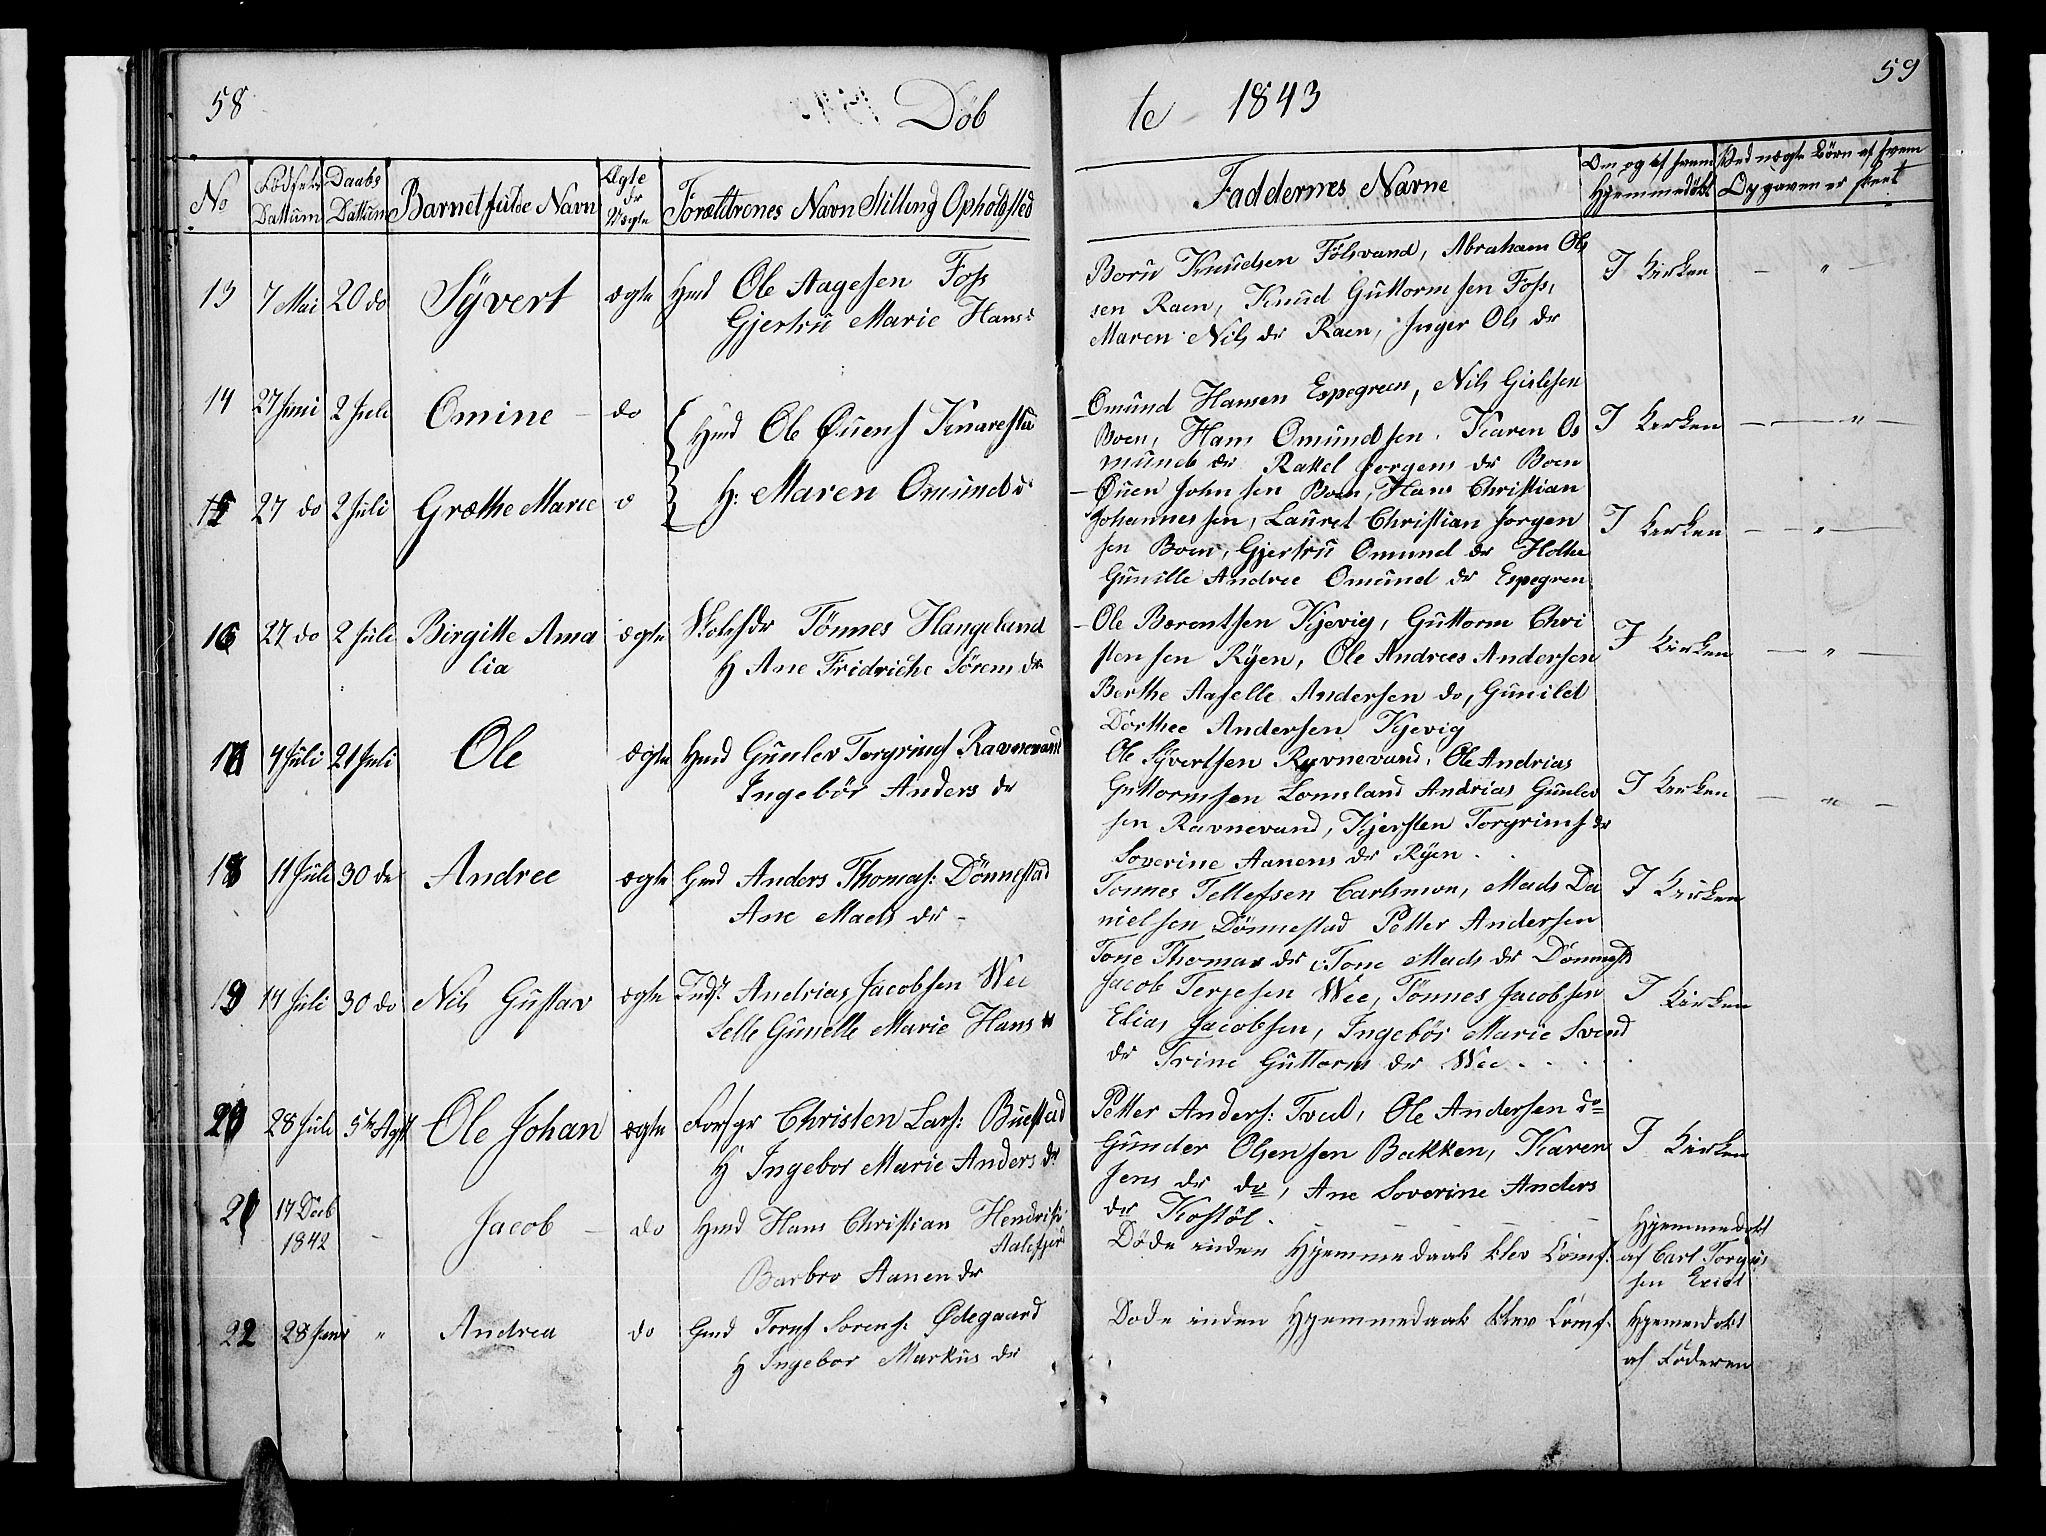 58
Döb
te 1843
59
No
Födsels Dattum
Daabs Dattum
Barnet fulde Navn
Ægte Er Uægte
Forældrenes Navn Stilling Opholdsted
Faddernes Navne
Om og af hvem Hjemmedöbt
Ved uægte Börn af hvem Opgaven er skeet
13 7 Mai 20 do Syvert ægte Hmd Ole Aagesen Foss
Gjertru Marie Hans
Boru Knudsen Fölsvand, Abraham Ols
sen Raen, Knud Guttormsen Foss,
Maren Nils dr Raen, Inger Ols dr
I Kirken — " —
14 27 Juni 2 Juli Omine — do Hmd Ole Øuens Knarestu
Omund Hansen Espegreen, Nils Gislesen
Boen, Hans Omundsen. Karen Os
munds dr Rakel Jorgens dr Boen
I Kirken — — " —
15 27 do 2 Juli Græthe Marie H: Maren Omunds
Øuen Johnsen Boen, Hans Christian
Johannessen, Laurel Christian Jorgen
sen Boen, Gjertru Omund dr Holte
Gunille Andree Omund dr Espegren
I Kirken — " —
16 27 do 2 Juli Birgitte Ama
lia
ægte Tönnes Hangeland
H Ane Fridriche Sörens dr
Ole Berentsen Kjevig, Guttorm Chri
stensen Ryen, Ole Andrees Andersen
Berthe Aaselle Andersen do, Gunild
Dorthee Andersen Kjevig
I Kirken — " —
4 Juli 21 Juli Ole ægte Hmd Gunlev Torgrims Ravnevand
Ingebör Anders dr
Ole Syvertsen Ravnevand, Ole Andrias
Guttormsen Lomsland Andrias Gunlev
sen Ravnevand, Kjersten Torgrims dr
Soverine Aanens dr Ryen.
I Kirken — " —
18 11 Juli 30 do Andree ægte Gmd Anders Thomas: Dönnestad
Ane Mads dr —
Tonnes Tellefsen Carlsmon, Mads Da
nielsen Dönnestad Petter Andersen
Tone Thomas dr, Tone Mads dr Dönnests
I Kirken
19 14 Juli 30 do Nils Gustav ægte Inds. Andrias Jacobsen Wee
Selle Gunelle Marie Hans
Jacob Terjesen Wee, Tönnes Jacobsen
Elias Jacobsen, Ingebör Marie Svend
dr Trine Guttorms dr Wee.
I Kirken
20 28 Juli 5te Agst Ole Johan ægte Forsgr Christen Lars: Buestad
H Ingebor Marie Anders dr
Petter Anders: Tveit, Ole Andersen do
Gunder Olsensen Bakken, Karen
Jens dr do, Ane Soverine Anders
dr Kostöl.
I Kirken
21 17 Decb
1842
Jacob — do Hmd Hans Christian Hendriks:
Aalefjer
Barbro Aanen dr
Döde inden Hjemmedaab blev
Hjemmedøbt
af Carl Torgus
sen
22 28 " Andrea do Gmd Sorens: Ødegaard
H Ingebor Markus dr
Dode inden Hjemmedaab blev
Hjemmedobt
af Foderen